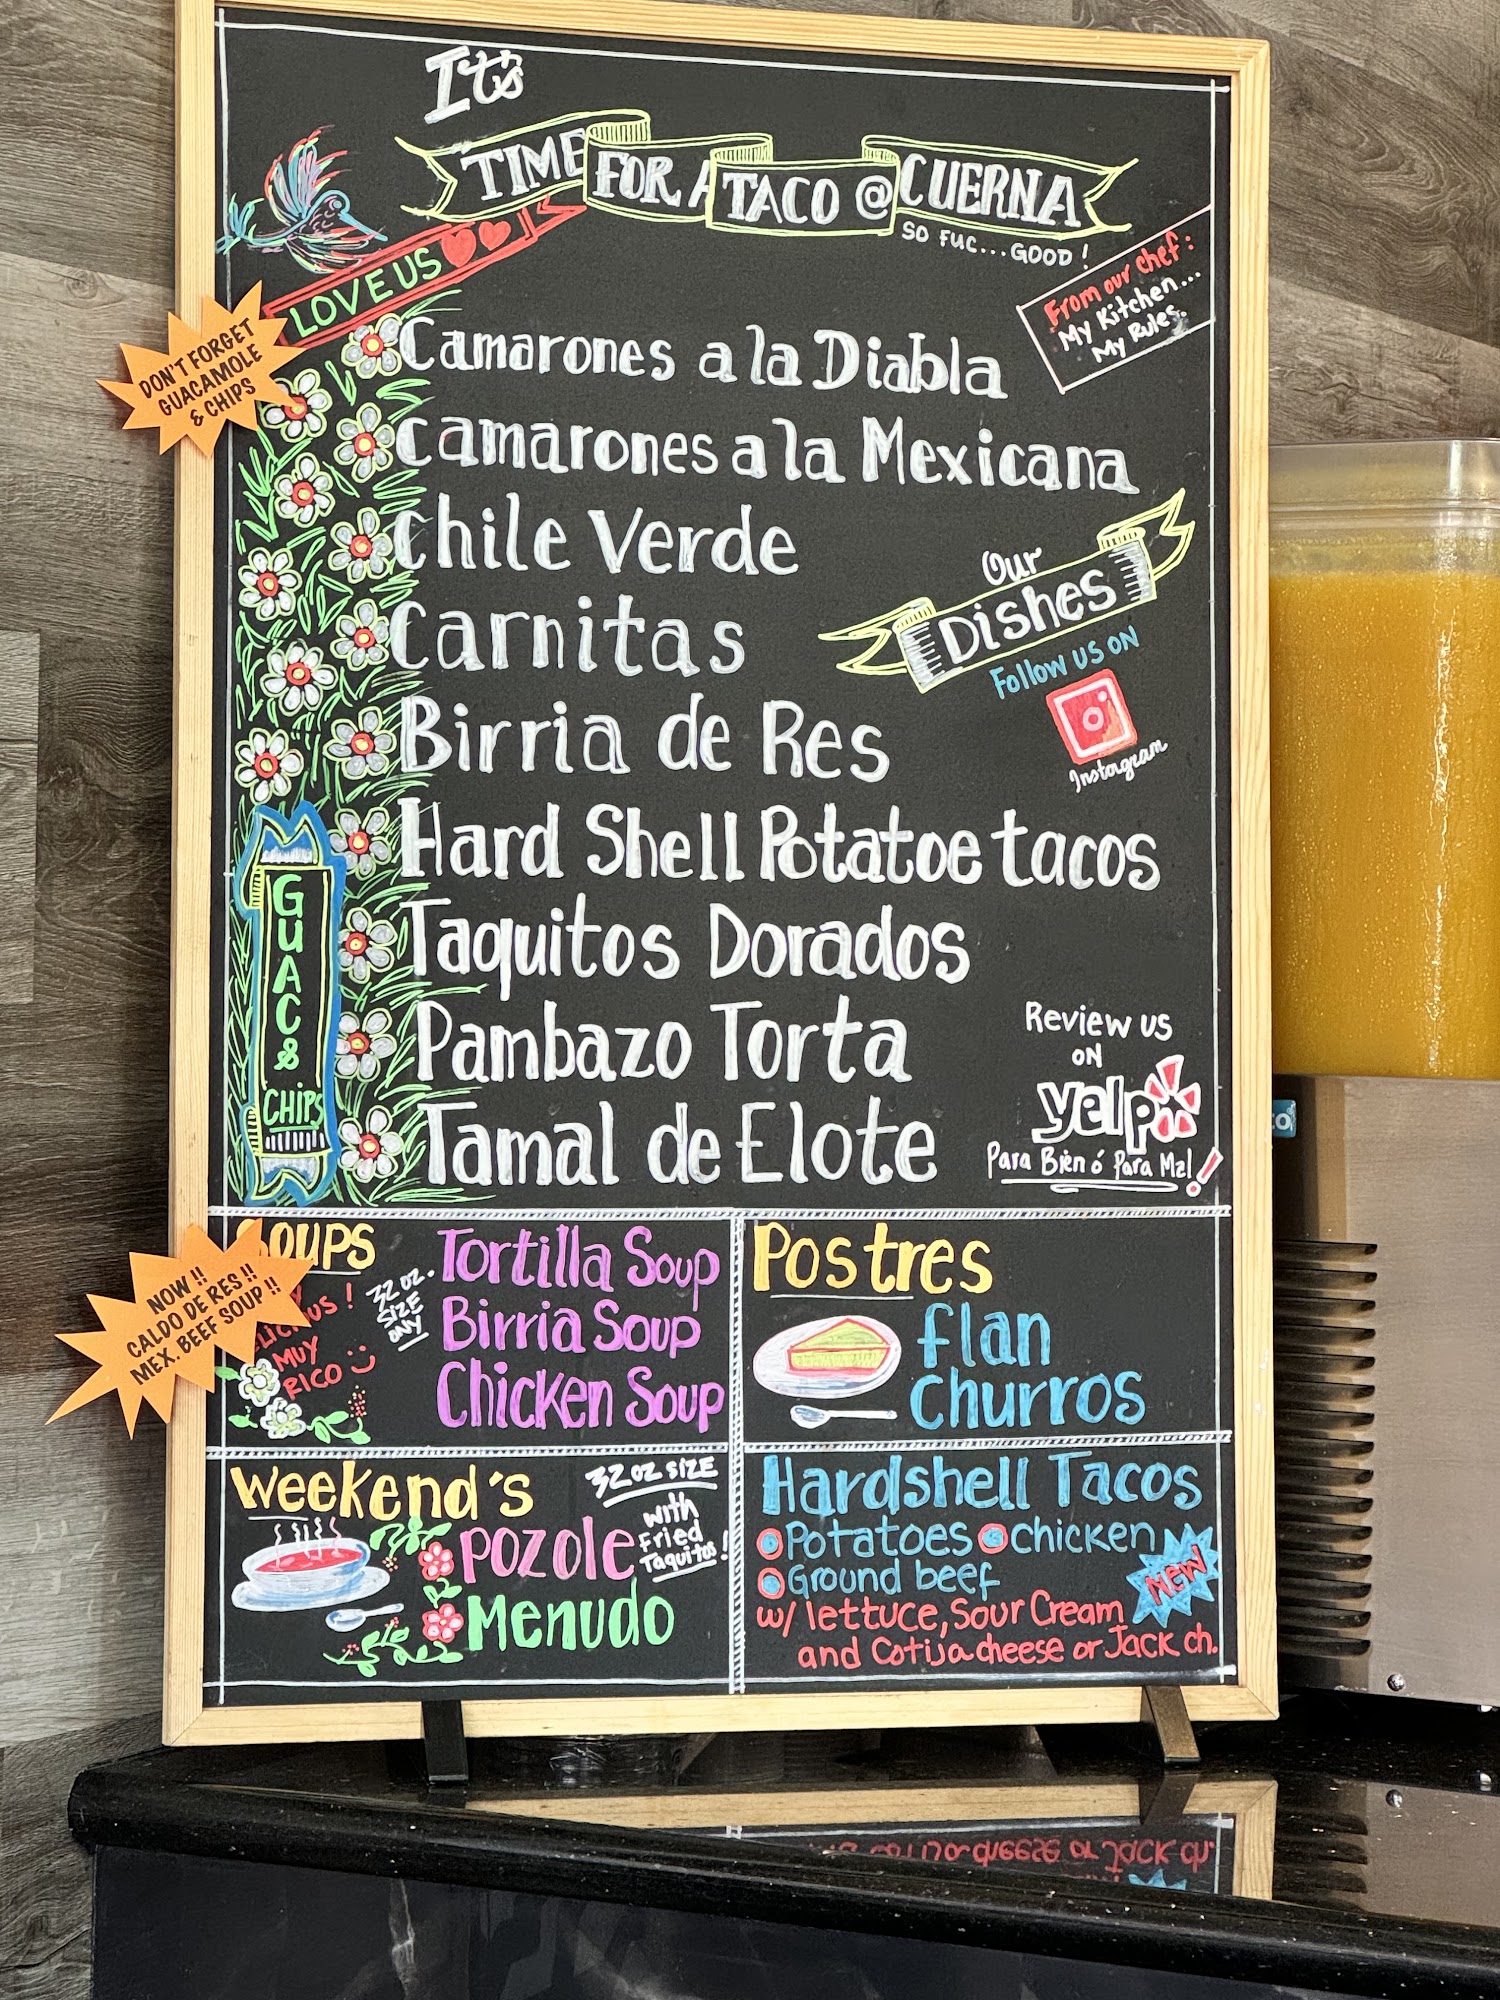 It's
TIME FOR A TACO @ CUERNA
SO FUC...GOOD!
LOVE US
From our chef:
My Kitchen...
My Rules.
DON'T FORGET
GUACAMOLE
& CHIPS
Camarones a la Diabla
Camarones a la Mexicana
Chile Verde
Carnitas
Birria de Res
Hard Shell Potatoe tacos
Taquitos Dorados
Pambazo Torta
Tamal de Elote
Our
Dishes
Follow us on
Instagram
GUAC &
CHIPS
Review us
on
yelp
Para Bien ó Para Mal!
Soups
NOW!!
CALDO DE RES!!
MEX. BEEF SOUP!!
MUY
RICO
32 oz.
SIZE
ONLY
Tortilla Soup
Birria Soup
Chicken Soup
Postres
flan
churros
Weekend's
32 oz SIZE
with
Fried
Taquitos!
POZOLE
Menudo
Hardshell Tacos
Potatoes chicken
Ground beef
NEW
w/ lettuce, Sour Cream
and Cotija cheese or Jack ch.